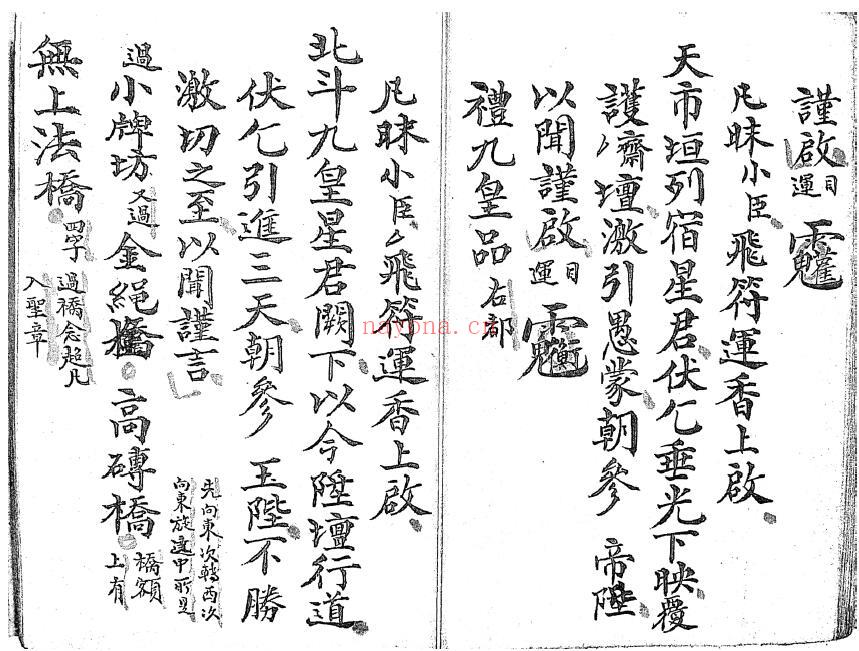 謹啟 運目
凡昧小臣飛符運香上啟
天市垣列宿星君伏乞垂光下映覆
護齋壇激引愚蒙朝參 帝陛
以聞謹啟 運目
禮九皇品 右部
凡昧小臣飛符運香上啟
北斗九皇星君闕下以今陞壇行道
伏乞引進三天朝參 玉陛不勝
激切之至以聞謹言
先向東次轉西次
向東旋遶中所見
過小牌坊又過金繩橋 高磚橋 橋額上有
無上法橋 四字 過橋念超凡入聖章
nayona.cn